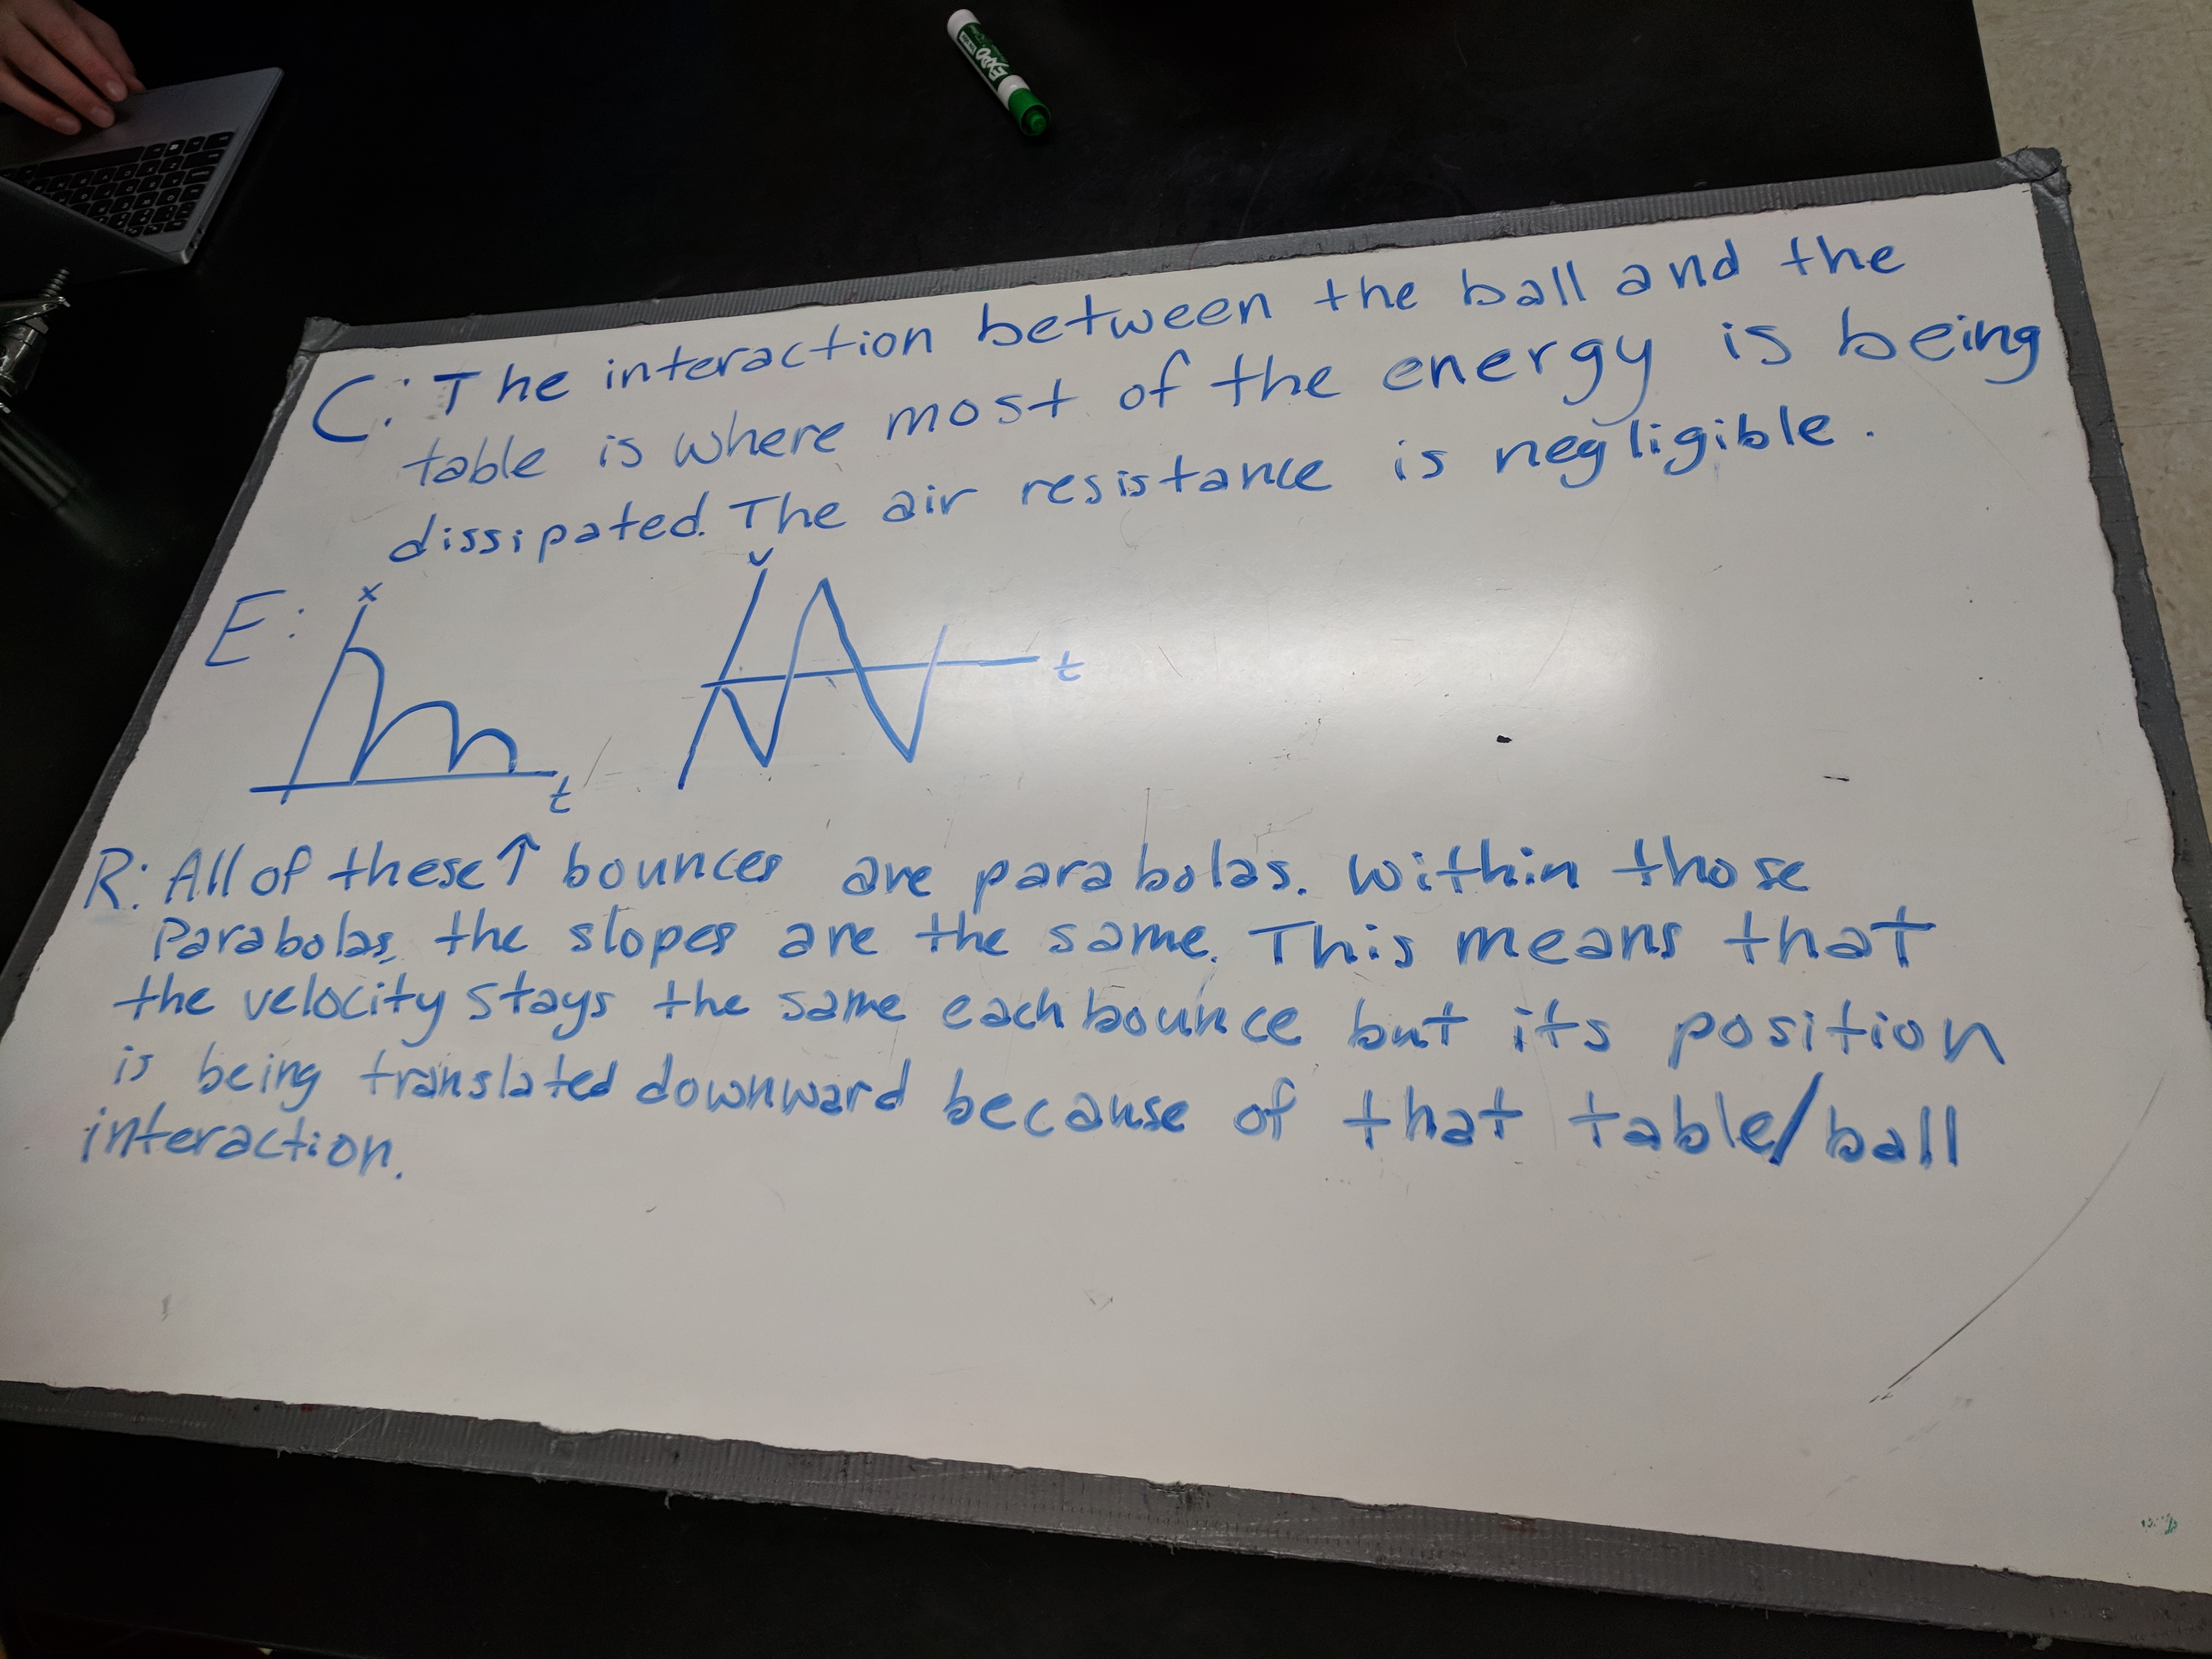 C: The interaction between the ball and the
table is where most of the energy is being
dissipated. The air resistance is negligible.
E:
x
t
v
t
R: All of these ↑ bounces are parabolas. Within those
Parabolas, the slopes are the same. This means that
the velocity stays the same each bounce but its position
is being translated downward because of that table/ball
interaction.
EXPO